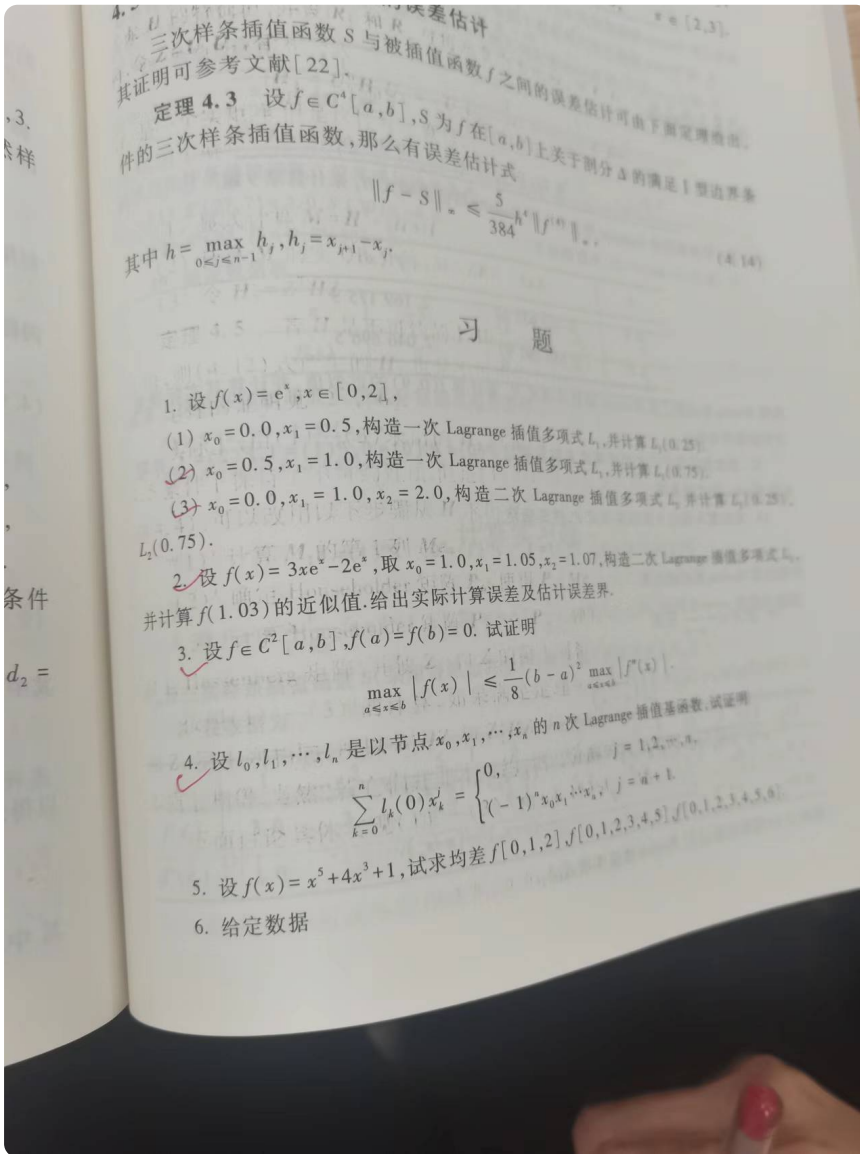 误差估计
∈[2,3].
三次样条插值函数 S 与被插值函数 f 之间的误差估计可由下面定理给出,
其证明可参考文献[22].
定理 4.3 设 f∈C⁴[a,b],S 为 f 在[a,b]上关于剖分 Δ 的满足 I 型边界条
件的三次样条插值函数,那么有误差估计式
‖f-S‖∞ ≤ 5/384 h⁴‖f⁽⁴⁾‖∞, (4.14)
其中 h = max_{0≤j≤n-1} h_j, h_j = x_{j+1}-x_j.
习 题
1. 设 f(x)=eˣ,x∈[0,2],
(1) x₀=0.0,x₁=0.5,构造一次 Lagrange 插值多项式 L₁,并计算 L₁(0.25).
(2) x₀=0.5,x₁=1.0,构造一次 Lagrange 插值多项式 L₁,并计算 L₁(0.75).
(3) x₀=0.0,x₁=1.0,x₂=2.0,构造二次 Lagrange 插值多项式 L₂ 并计算 L₂(0.25),
L₂(0.75).
2. 设 f(x)=3xeˣ-2eˣ,取 x₀=1.0,x₁=1.05,x₂=1.07,构造二次 Lagrange 插值多项式 L₂,
并计算 f(1.03)的近似值.给出实际计算误差及估计误差界.
3. 设 f∈C²[a,b],f(a)=f(b)=0. 试证明
max_{a≤x≤b} |f(x)| ≤ 1/8 (b-a)² max_{a≤x≤b} |f″(x)|.
4. 设 l₀,l₁,…,lₙ 是以节点 x₀,x₁,…,xₙ 的 n 次 Lagrange 插值基函数,试证明
∑_{k=0}^{n} l_k(0)x_k^j = { 0, j=1,2,…,n,
(-1)ⁿx₀x₁…xₙ, j=n+1.
5. 设 f(x)=x⁵+4x³+1,试求均差 f[0,1,2],f[0,1,2,3,4,5],f[0,1,2,3,4,5,6].
6. 给定数据
,3.
然样
条件
d₂ =